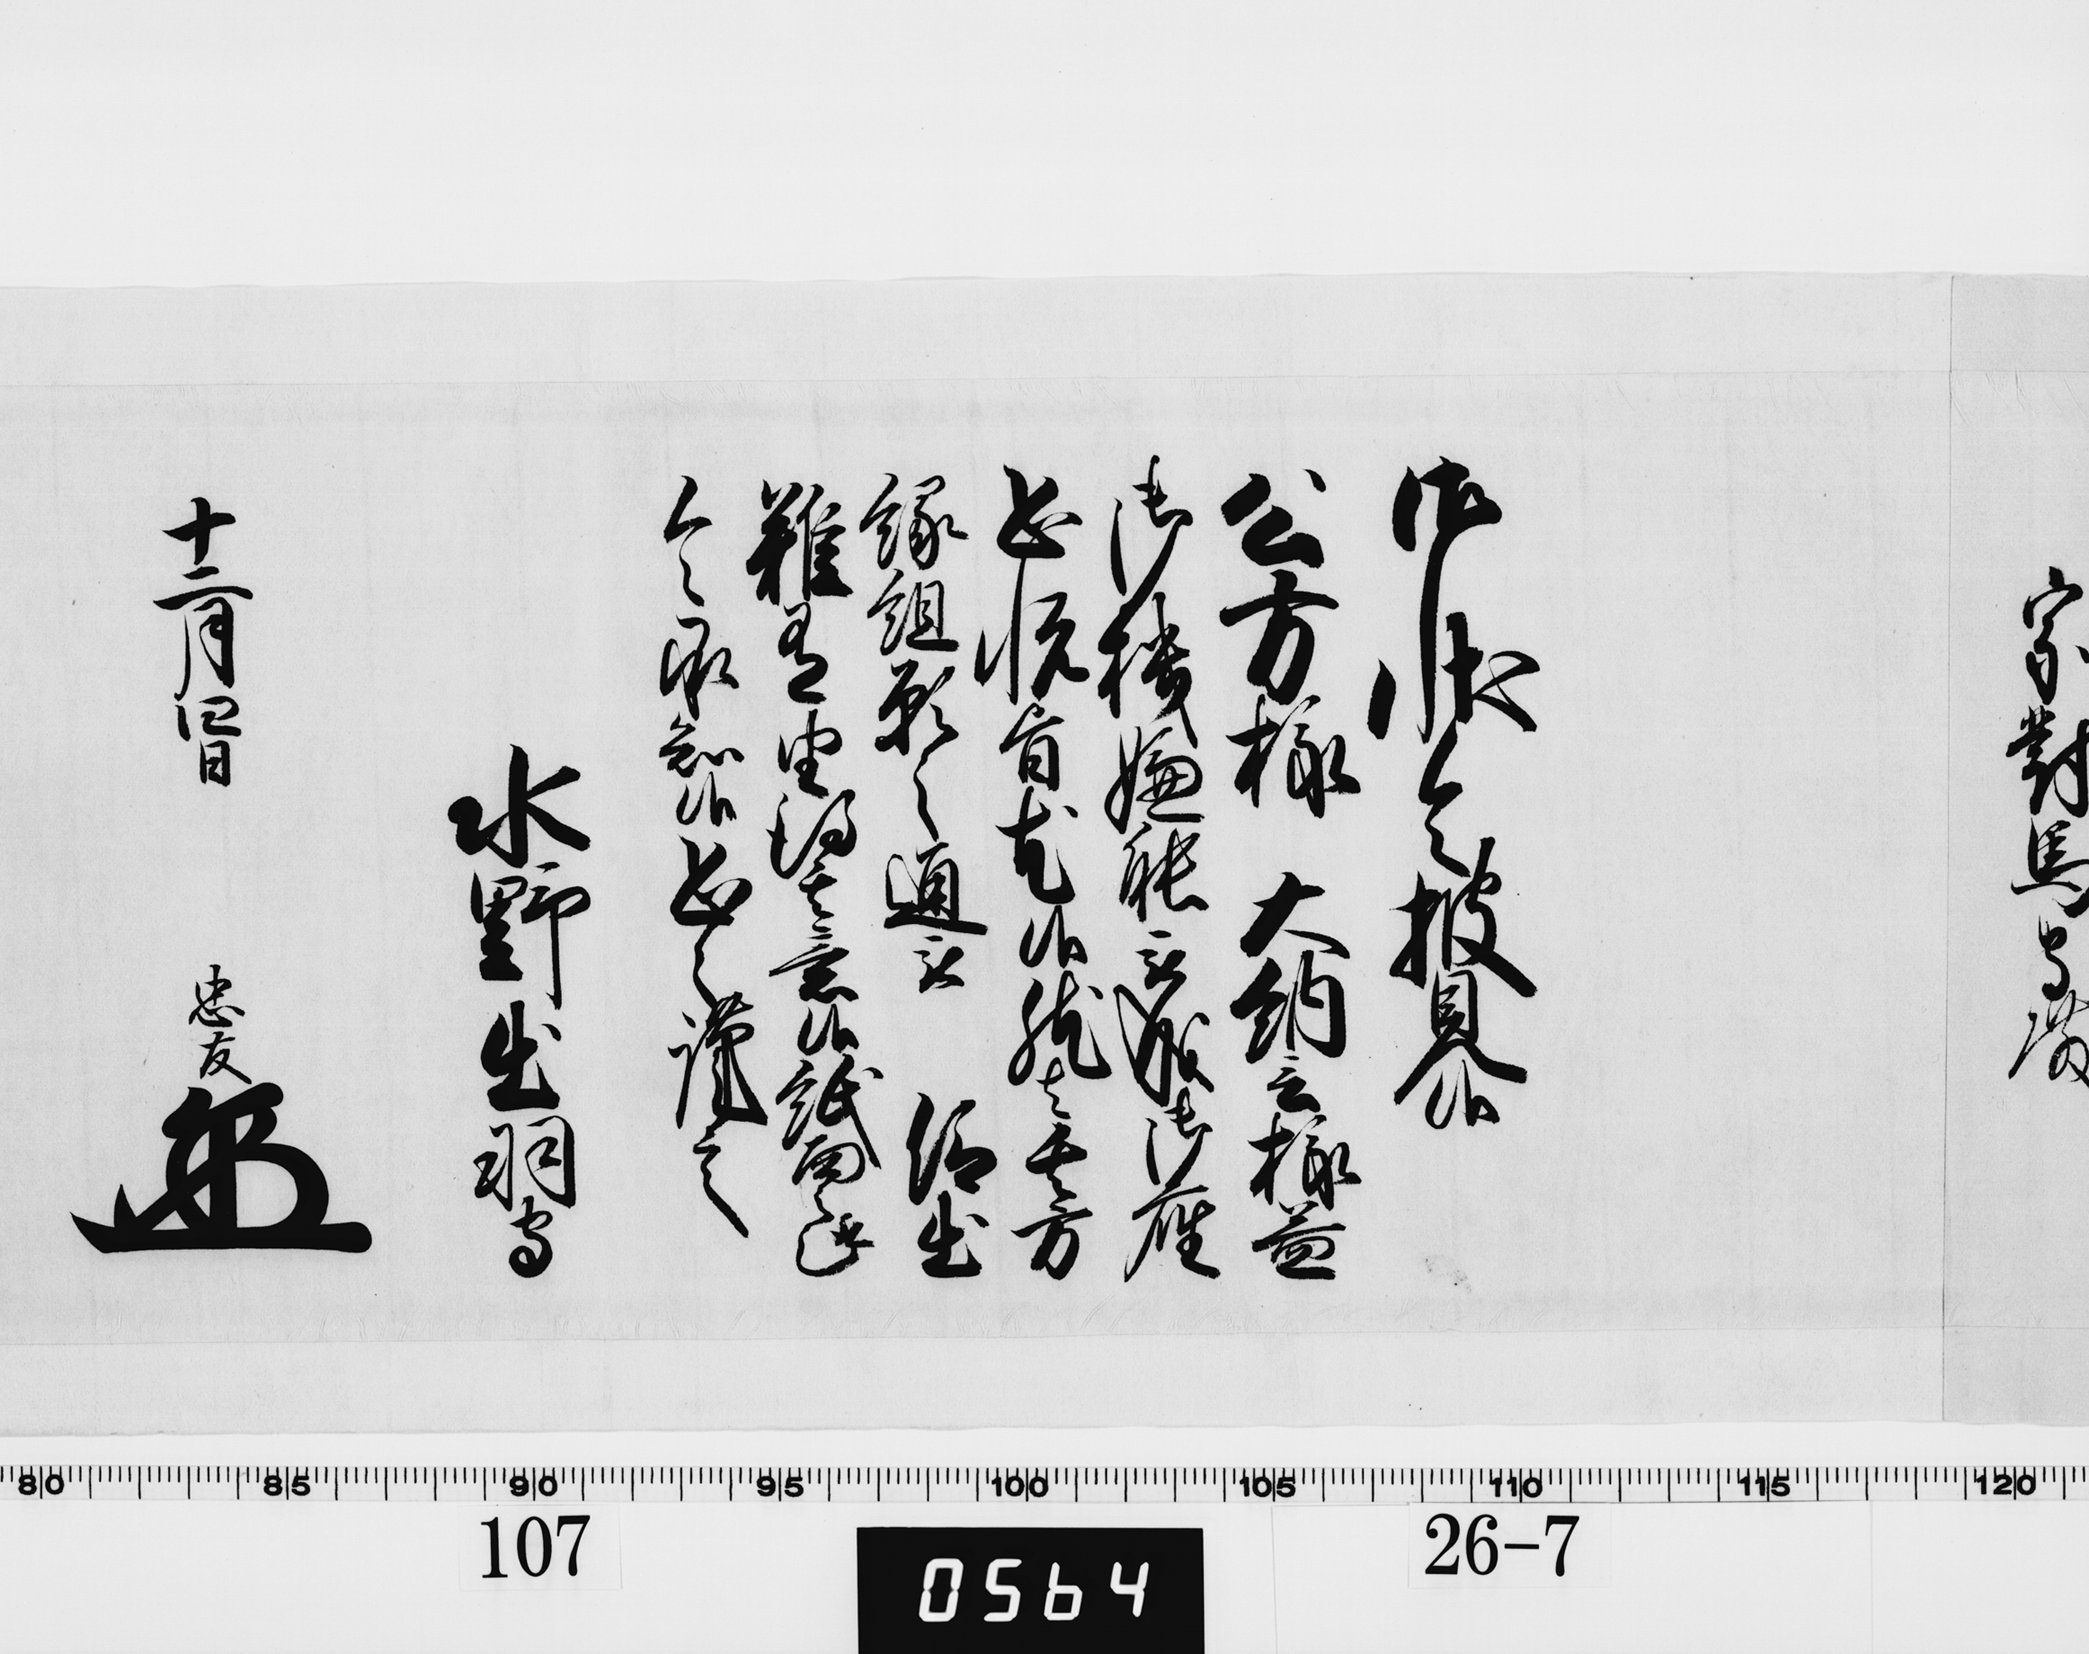 宗對馬守殿
御状令披見候
公方様　大納言様益
御機嫌能被成御座
恐悦旨尤候然者其方
縁組願之通被　仰出
難有得其意候紙面之趣
令承知候恐々謹言
水野出羽守
十二月四日
忠友
80 85 90 95 100 105 110 115 120
107
26-7
0564